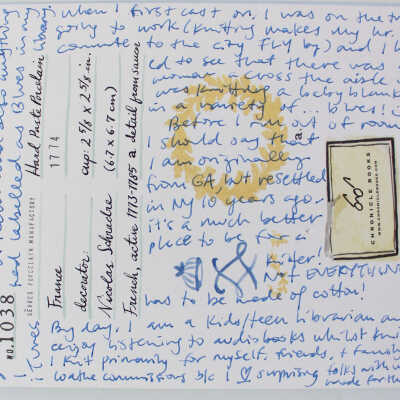 when I first cast on. I was on the
going to work (knitting makes my hr.
commute to the city fly by) and I
ed to see that there was
woman across the aisle
was knitting a baby blank
in a variety of... Blues!
Before I run out of room
I should say that
I am originally
from GA, but resettled
in NY 10 years ago.
it's a much better
place to be for a
Not EVERYTHING
has to be made of cotton!
By day, I am a kids/teen librarian an
enjoy listening to audiobooks whilst
I knit primarily for myself, friends, + family
commissions b/c I ♡ surprising folks with
made for th
had labelled as Blues in my
library.
i tunes
NO. 1038
SÈVRES PORCELAIN MANUFACTORY
Hard Paste Porcelain
1774
cup: 2 5/8 x 2 5/8 in.
(6.7 x 6.7 cm)
a detail from saucer
France
decorator
Nicolas Schradre
French, active 1773-1785
CHRONICLE BOOKS
WWW.CHRONICLEBOOKS.COM